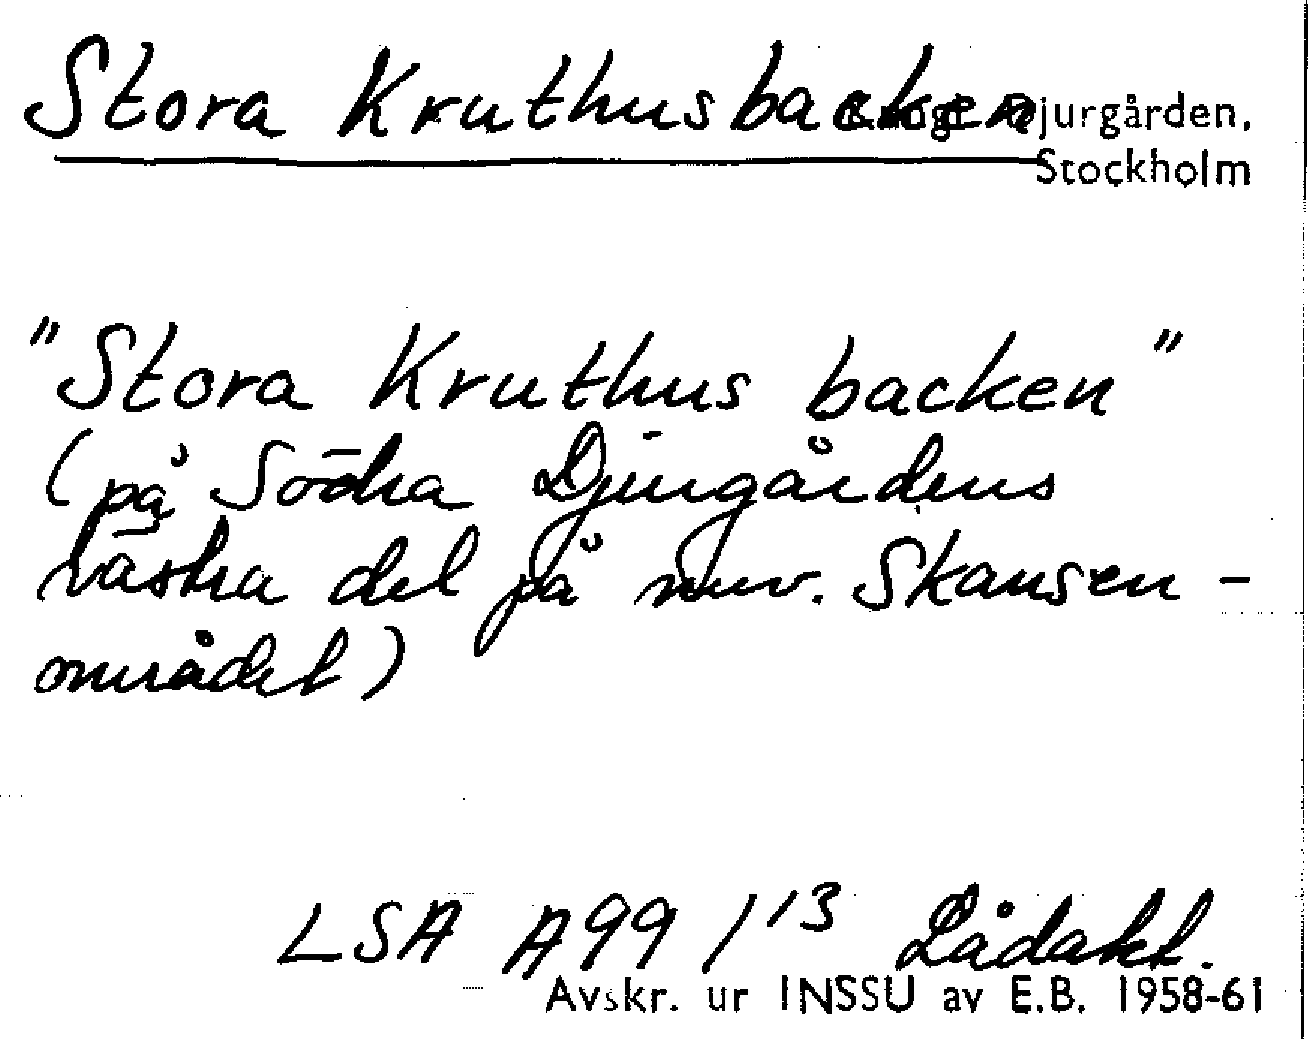 Stora Kruthusbacken
Kungl. Djurgården,
Stockholm
"Stora Kruthus backen"
(på Södra Djurgårdens
västra del på nuv. Skansen-
området)
LSA A99 /13 Lådakt.
Avskr. ur INSSU av E.B. 1958-61